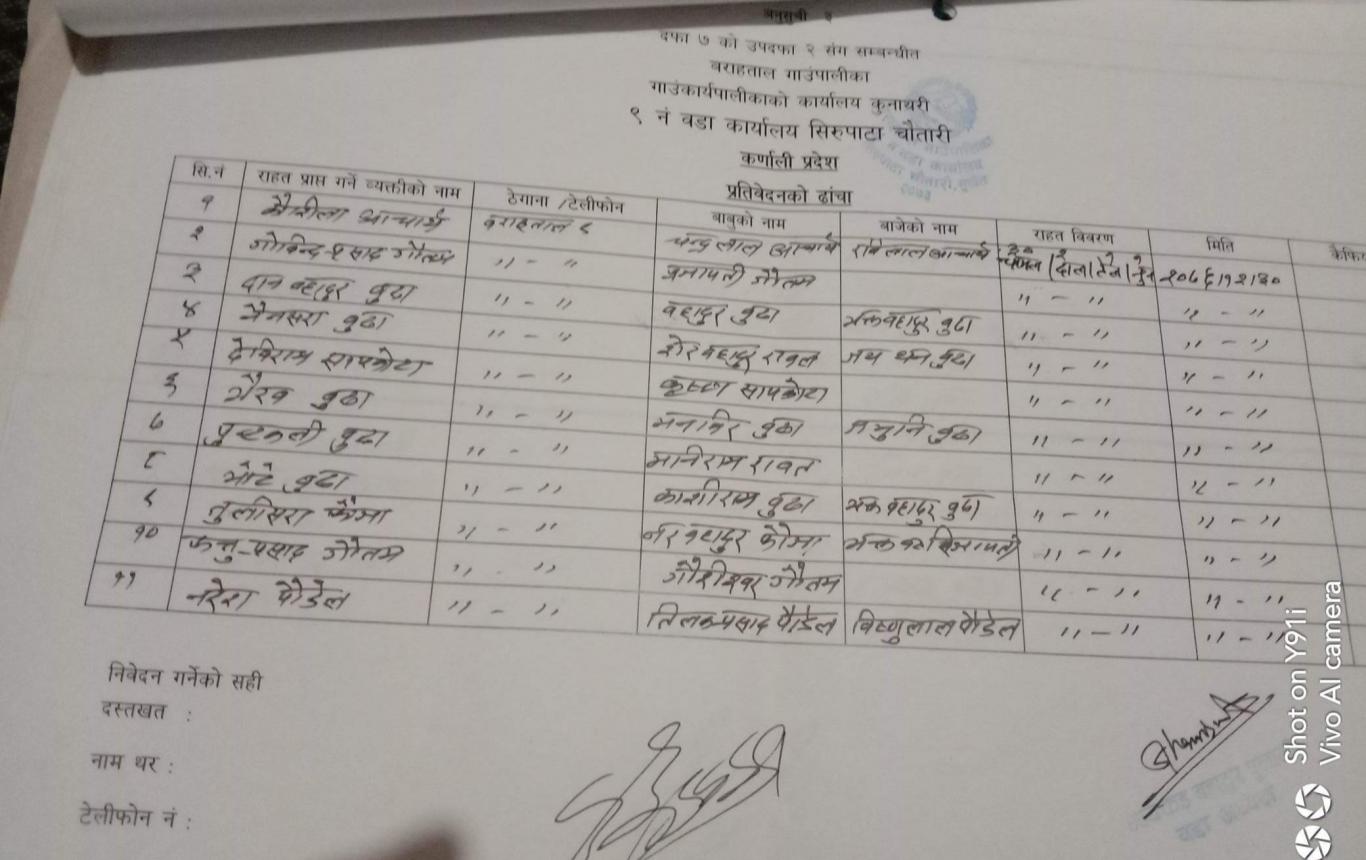 अनुसुची ३
दफा ७ को उपदफा २ संग सम्बन्धीत
बराहताल गाउंपालीका
गाउंकार्यपालीकाको कार्यालय कुनाथरी
९ नं वडा कार्यालय सिरुपाटा चौतारी
कर्णाली प्रदेश
प्रतिवेदनको ढांचा
सि.नं राहत प्राप्त गर्ने व्यक्तीको नाम ठेगाना /टेलीफोन बाबुको नाम बाजेको नाम राहत विवरण मिति
१ आचार्य वराहताल ९ चन्द्रलाल आचार्य रविलाल आचार्य चामल/दाल/तेल/नुन २०७६/१२/३०
२ गोविन्द प्रसाद गौतम " - " प्रजापती गौतम " - " " - "
३ दान बहादुर वुढा " - " वहादुर वुढा भक्तवहादुर वुढा " - " " - "
४ मैनसरा वुढा " - " शेरवहादुर रावल जय धन वुढा " - " " - "
५ देविराम सापकोटा " - " कृष्ण सापकोटा " - " " - "
६ भैरव वुढा " - " मनविर वुढा जमुनि वुढा " - " " - "
७ वुढा " - " मानिराम रावत " - " " - "
८ मोटे वुढा " - " काशीराम वुढा भक्तवहादुर वुढा " - " " - "
९ तुलीसरा " - " नरवहादुर " - " " - "
१० प्रसाद गौतम " - " गौरीश्वर गौतम " - " " - "
११ नरेश पौडेल " - " तिलकप्रसाद पौडेल विष्णुलाल पौडेल " - " " - "
निवेदन गर्नेको सही
दस्तखत :
नाम थर :
टेलीफोन नं :
Shot on Y91i
Vivo AI camera